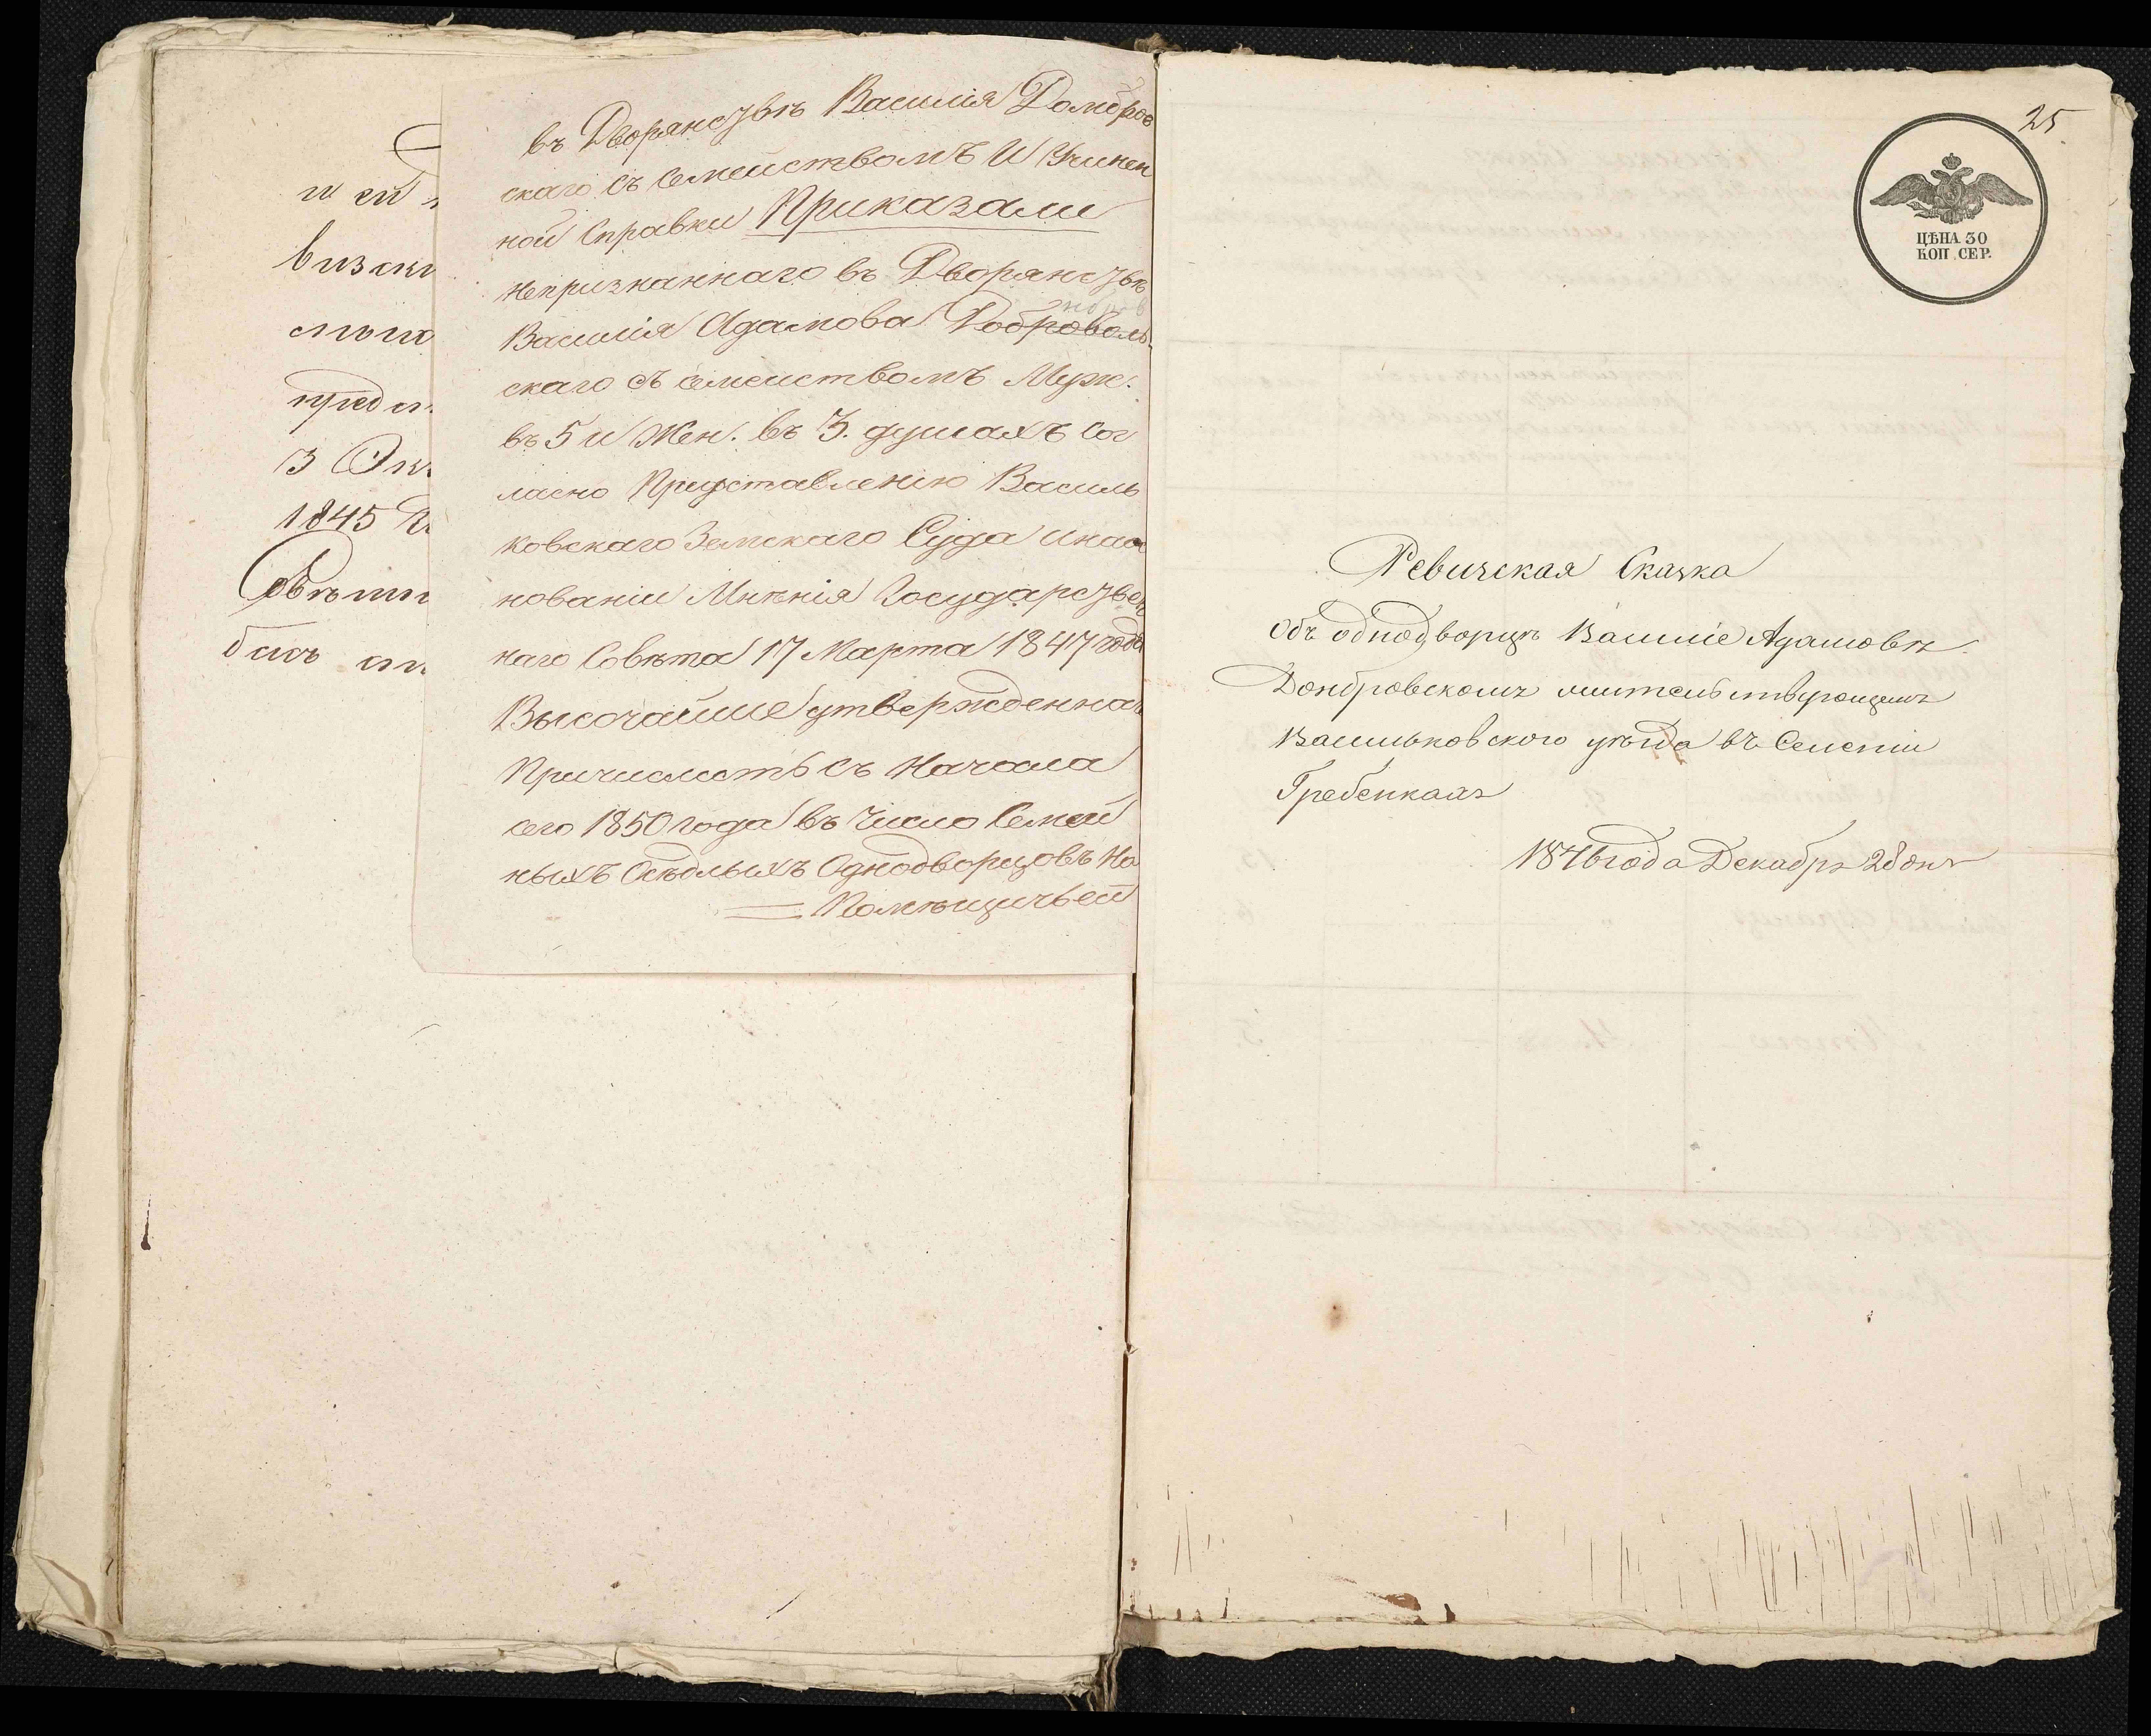 и ей
визски
предст
3 Окт
1845
въ Дворянствѣ Василія Домбров
скаго съ семействомъ И Учинен
ной Справки Приказали
непризнаннаго въ Дворянствѣ
Василія Адамова Доброволь
скаго съ семействомъ Муж.
въ 5 и Жен. въ 3. душахъ Сог
ласно Представленію Василь
ковскаго Земскаго Суда и на ос
нованіи Мнѣнія Государствен
наго Совѣта 17 Марта 1847 года
Высочайше утвержденнаго
Причислить съ Начала
сего 1850 года въ Число Семей
ныхъ Осѣдлыхъ Однодворцовъ На
Помѣщичьей
25
ЦѢНА 30
КОП. СЕР.
Ревизская Сказка
Объ однодворцѣ Василіе Адамовѣ
Донбровскомъ жительствующемъ
Васильковского уѣзда въ Селеніи
Гребенкахъ
1846 года Декабря 28 дня